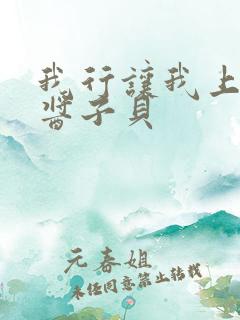 我行讓我上
醬子貝
元春姐
未经同意禁止转载